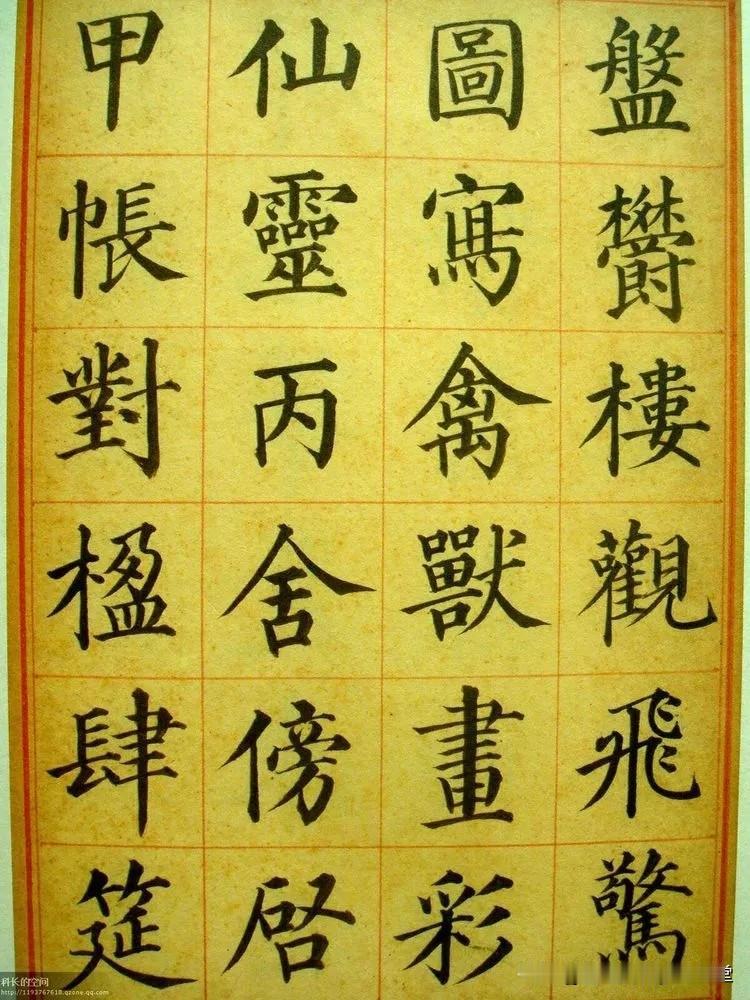 盤欝樓觀飛驚
圖寫禽獸畫彩
仙靈丙舍傍啓
甲帳對楹肆筵
科长的空间
http://1193767618.qzone.qq.com